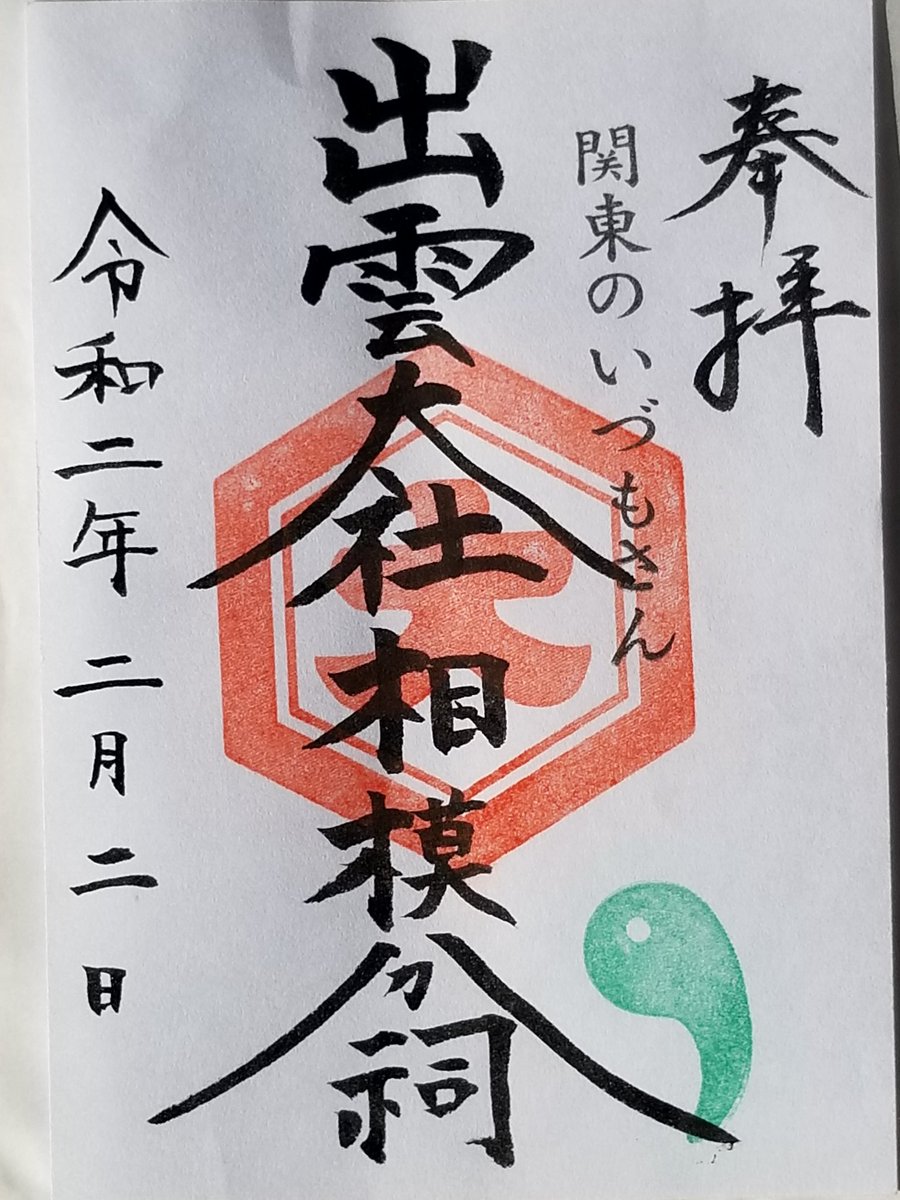 奉拝
関東のいづもさん
出雲大社相模分祠
令和二年二月二日